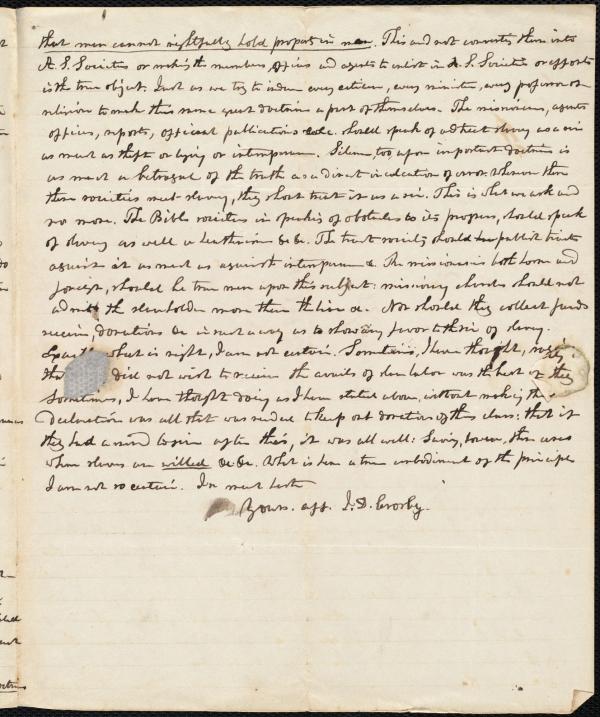 that men cannot rightfully hold property in men. This and not converting them into
A. S. Societies or making the members, officers and agents to enlist in A. S. Societies or apports
is the true object. Just as we try to induce every citizen, every minister, every professor of
religion to make this same great doctrine a part of themselves. The missionaries, agents
officers, reports, official publications &c. should speak of & treat slavery as a sin
as much as theft or lying or intemperance. Silence, too, upon important doctrines is
as much a betrayal of the truth as a direct inculcation of error. Wherever then
these societies meet slavery, they should treat it as a sin. This is what we ask and
no more. The Bible societies in speaking of obstacles to its progress, should speak
of slavery as well as heathenism &c &c. The tract society should publish tracts
against it as much as against intemperance &c. The missionaries both home and
foreign, should be true men upon this subject: missionary churches should not
admit the slaveholder more than the thief &c. Nor should they collect funds
receive donations &c in such a way as to show any favor to the sin of slavery.
Exactly what is right, I am not certain. Sometimes, I have thought,
that did not wish to receive the avails of slave labor was the best of
Sometimes, I have thought doing as I have stated above, without making the
Declaration was all that was needed to keep out donations of this class: that if
they had a mind to give after this, it was all well: Saving, however, the cases
where slaves are willed &c &c. What is here a true embodiment of the principle
I am not so certain. In much haste
Yours. aff. J. D. Crosby.